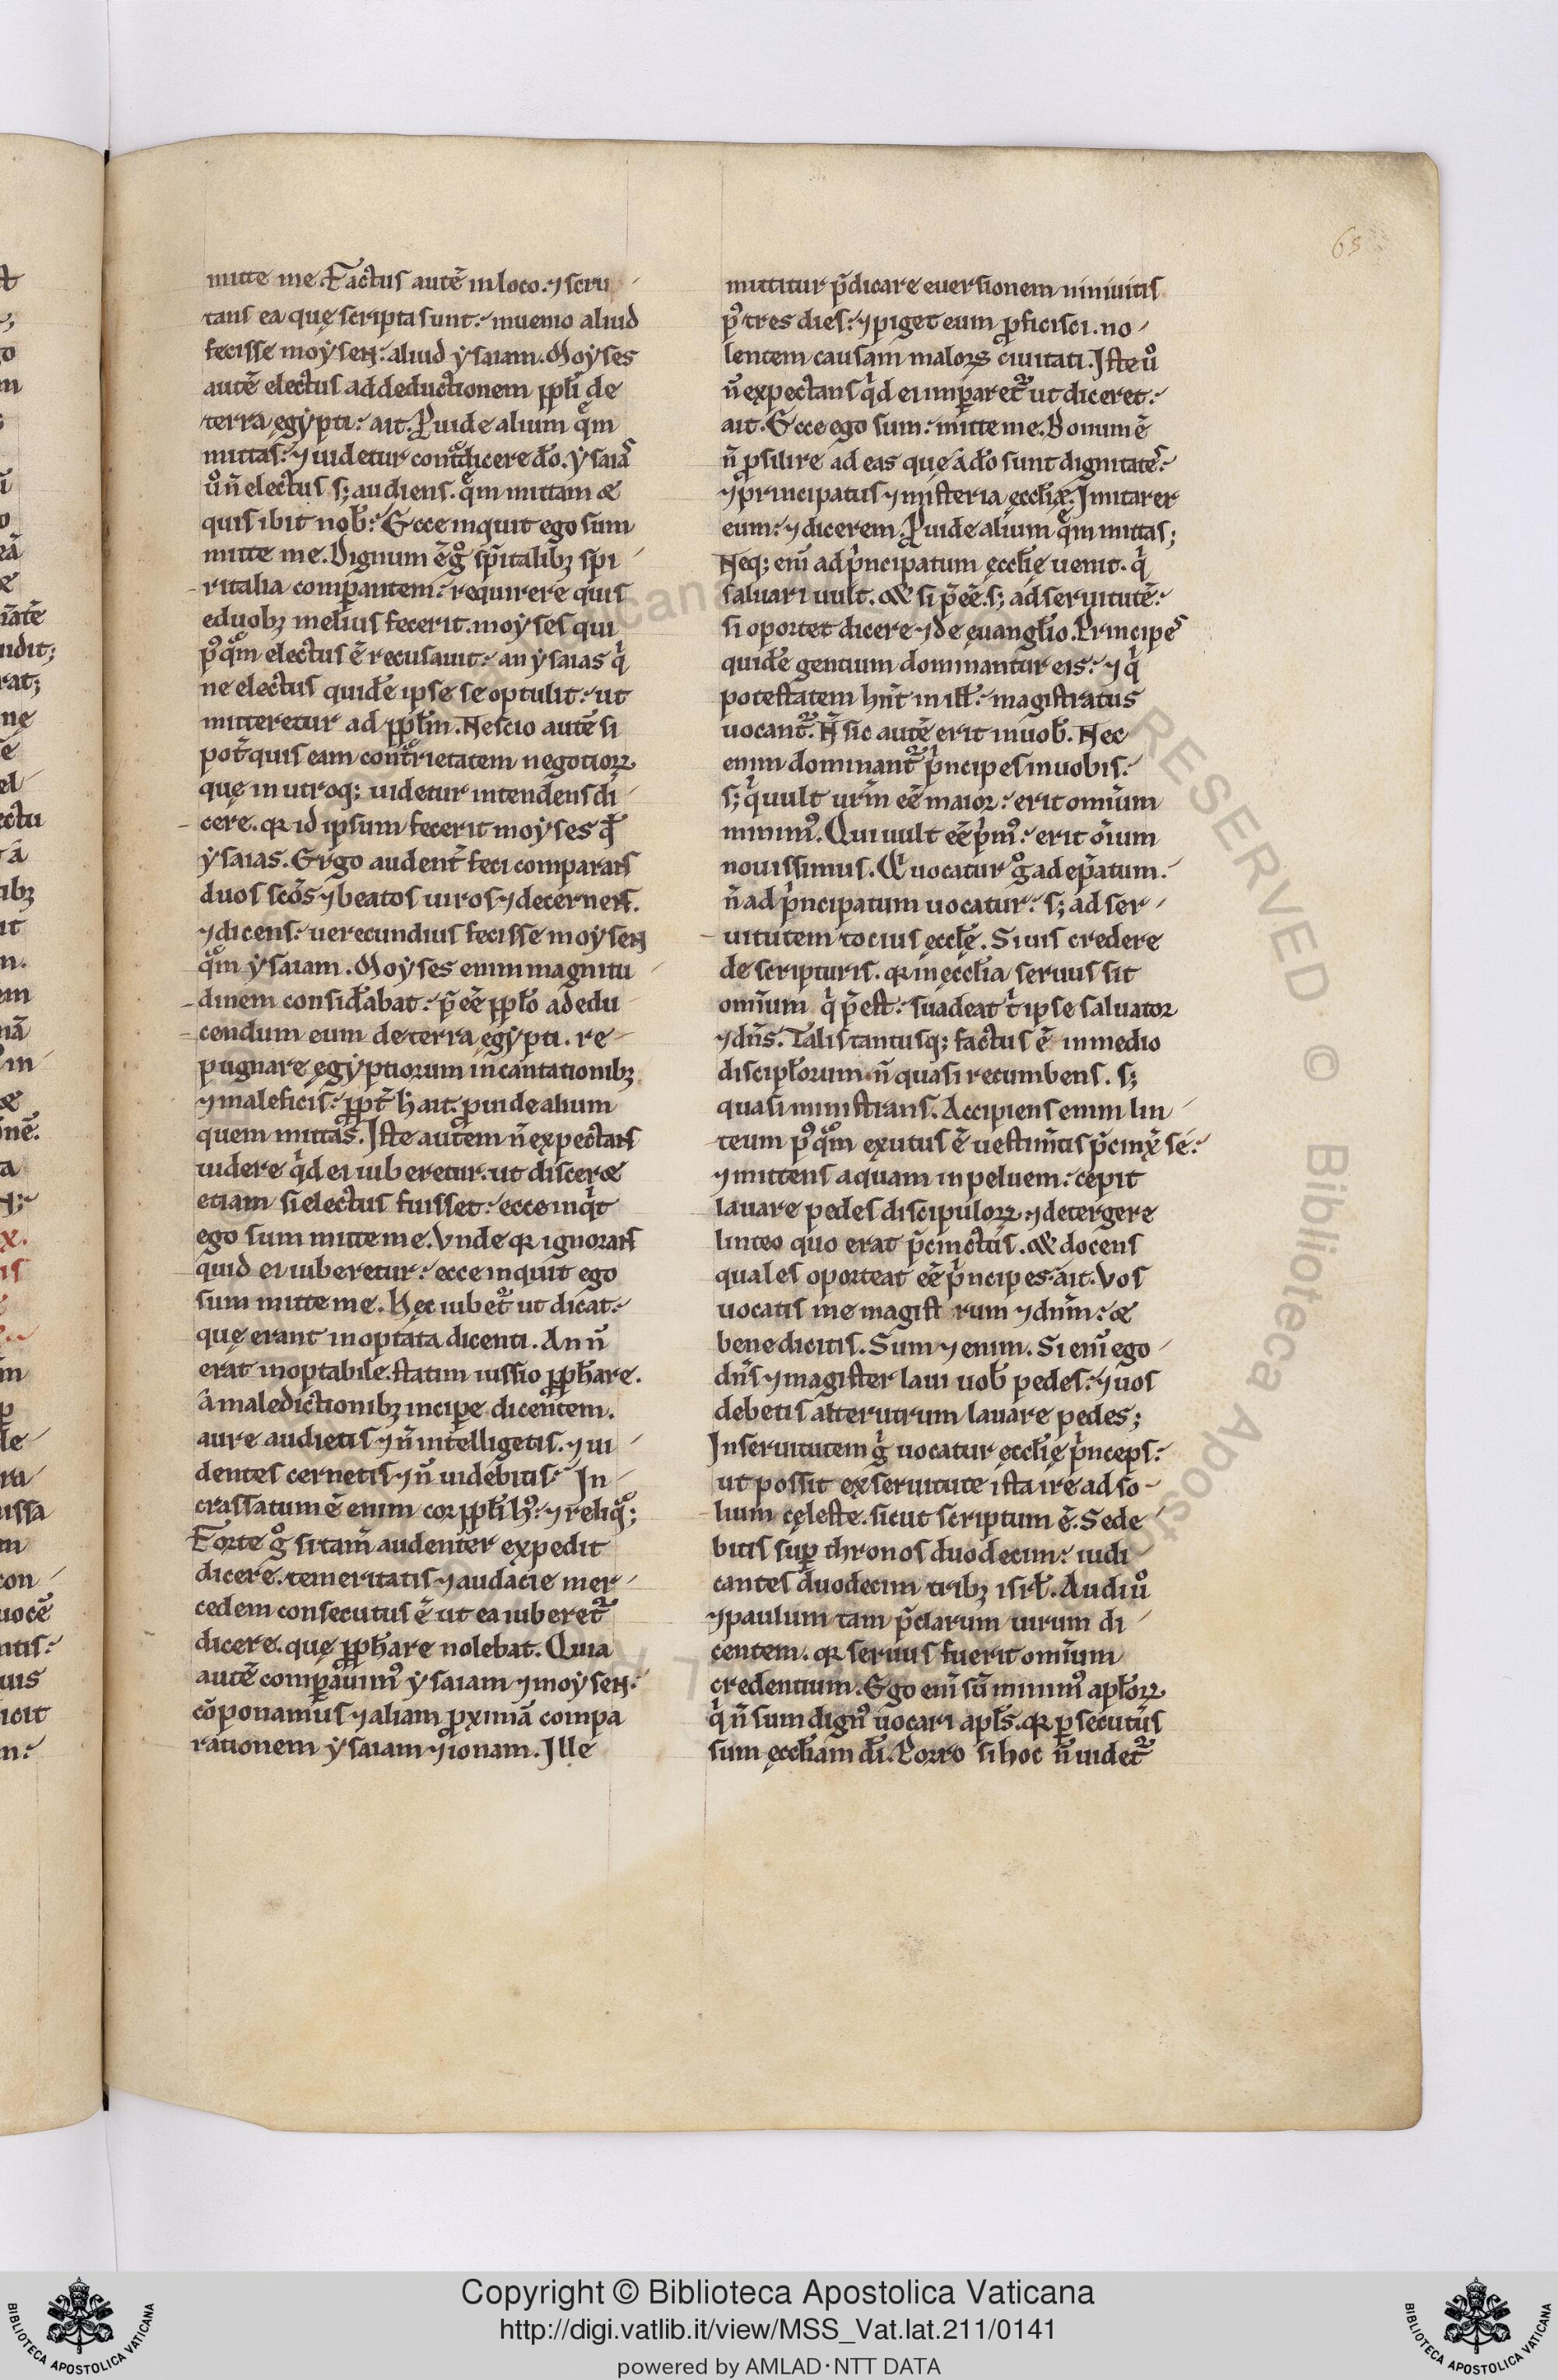 65
mitte me. Factus autē in loco. ⁊ scru-
tans ea quę scripta sunt: inuenio aliud
fecisse moẏsen: aliud ẏsaiam. Moẏses
autē electus ad deductionem ppłi de
terra egẏpti: ait. Puide alium quem
mittas: ⁊ uidetur cont̃dicere dõ. ẏsaias
ũo ñ electus s; audiens. quem mittam &
quis ibit nob̄: Ecce inquit ego sum
mitte me. Dignum ē gͦ sp̄italibꝫ spi-
ritalia comparantem: requirere quis
e duobꝫ melius fecerit. moẏses qui
pꝰqͣm electus ē recusauit: an ẏsaias qͥ
ne electus quidē ipse se optulit: ut
mitteretur ad ppłm. Nescio autē si
pot̃ quis eam cont̃rietatem negotioꝝ
quę in utroq; uidetur intendens di-
cere. qꝛ id ipsum fecerit moẏses qđ
ẏsaias. Ergo audent̃ feci comparans
duos scōs ⁊ beatos uiros ⁊ decernens.
⁊ dicens: uerecundius fecisse moẏsen
qͣm ẏsaiam. Moẏses enim magnitu-
dinem consid̄abat: p̄ eē ppło ad edu-
cendum eum de terra egẏpti. re-
pugnare egẏptiorum incantationibꝫ
⁊ maleficis: ppt̃ h̄ ait. puide alium
quem mittas. Iste autem ñ expectans
uidere qͥd ei iuberetur. ut disceret
etiam si electus fuisset: ecce inqͥt
ego sum mitte me. Vnde qꝛ ignorans
quid ei iuberetur: ecce inquit ego
sum mitte me. Hęc iubet̃ ut dicat:
quę erant inoptata dicenti. An ñ
erat inoptabile. statim iussio pph̄are.
a maledictionibꝫ incipe dicentem.
aure audietis ⁊ ñ intelligetis. ⁊ ui-
dentes cernetis ⁊ ñ uidebitis: In-
crassatum ē enim cor ppłi hꝰ: ⁊ reliqͣ;
Forte gͦ si tam̄ audenter expedit
dicere. temeritatis ⁊ audacie mer-
cedem consecutus ē ut ea iuberet̃
dicere. quę pph̄are nolebat. Quia
autē comparauimꝰ ẏsaiam ⁊ moẏsen:
cōponamus ⁊ aliam pximā compa
rationem ẏsaiam ⁊ ionam. Ille
mittitur p̄dicare euersionem niniuitis
pꝰ tres dies: ⁊ piget eum pficisci. no-
lentem causam maloꝝ ciuitati. Iste ũo
ñ expectans qͥd ei imparet̃ ut diceret:
ait. Ecce ego sum: mitte me. Bonum ē
ñ psilire ad eas quę a dõ sunt dignitates:
⁊ principatus ⁊ misteria ęccłię. Imitarer
eum: ⁊ dicerem. Puide alium quem mittas;
Neq; eni ad pͥncipatum ęccłię uenit. qͥ
saluari uult. & si p̄ eē. s; ad seruitutē:
si oportet dicere ⁊ de euangłio. Principes
quidē gentium dominantur eis: ⁊ qͥ
potestatem hn̄t in ill̄: magistratus
uocant̃. Ñ sic autē erit in uob̄. Nec
enim dominant̃ pͥncipes in uobis:
s; qͥ uult ur̄m eē maior: erit omn̄ium
minimꝰ. Qui uult eē pͥmꝰ: erit oīum
nouissimus. Qͥ uocatur gͦ ad ep̄atum.
ñ ad pͥncipatum uocatur: s; ad ser-
uitutem tocius ęccłę. Si uis credere
de scripturis. qꝛ in ęccłia seruus sit
omn̄ium qͥ p̄est: suadeat tͥ ipse saluator
⁊ dn̄s. Talis tantusq; factus ē in medio
discipłorum ñ quasi recumbens. s;
quasi ministrans. Accipiens enim lin-
teum pꝰqͣm exutus ē uestim̄tis p̄cinx̄ se:
⁊ mittens aquam in peluem: cepit
lauare pedes discipuloꝝ ⁊ detergere
linteo quo erat p̄cinctus. & docens
quales oporteat eē pͥncipes: ait. Vos
uocatis me magistrum ⁊ dn̄m: &
bene dicitis. Sum ⁊ enim. Si eni ego
dn̄s ⁊ magister laui uob̄ pedes: ⁊ uos
debetis alterutrum lauare pedes;
In seruitutem gͥ uocatur ęccłię pͥnceps:
ut possit ex seruitute ista ire ad so-
lium cęleste. sicut scriptum ē. Sede
bitis sup thronos duodecim: iudi-
cantes duodecim tribꝫ isrł. Audi ũo
⁊ paulum tam p̄clarum uirum di-
centem. qꝛ seruus fuerit omn̄ium
credentium. Ego eni sū minimꝰ apłoꝝ
qͥ ñ sum dignꝰ uocari apłs. qꝛ psecutus
sum ęccłiam dī. Porro si hoc ñ uidet̃
Copyright © Biblioteca Apostolica Vaticana
http://digi.vatlib.it/view/MSS_Vat.lat.211/0141
powered by AMLAD·NTT DATA